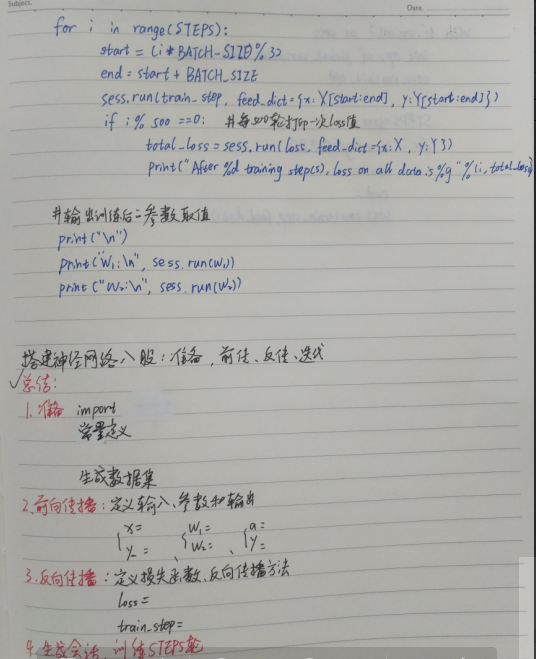 Subject.
Date.
for i in range(STEPS):
start = (i*BATCH-SIZE)%32
end = start + BATCH_SIZE
sess.run(train_step, feed_dict={x: X[start:end], y: Y[start:end]})
if i % 500 ==0: #每500轮打印一次loss值
total_loss = sess.run(loss, feed_dict={x: X, y: Y})
print("After %d training step(s), loss on all data is %g" %(i, total_loss)
#输出训练后二参数取值
print("\n")
print("W1:\n", sess.run(w1))
print("W2:\n", sess.run(w2))
搭建神经网络八股:准备,前传、反传、迭代
✓总结:
1.准备 import
常量定义
生成数据集
2.前向传播:定义输入、参数和输出
{x= {w1= {a=
y_= 、w2= 、y=
3.反向传播:定义损失函数、反向传播方法
loss=
train_step=
4.生成会话,训练STEPS轮